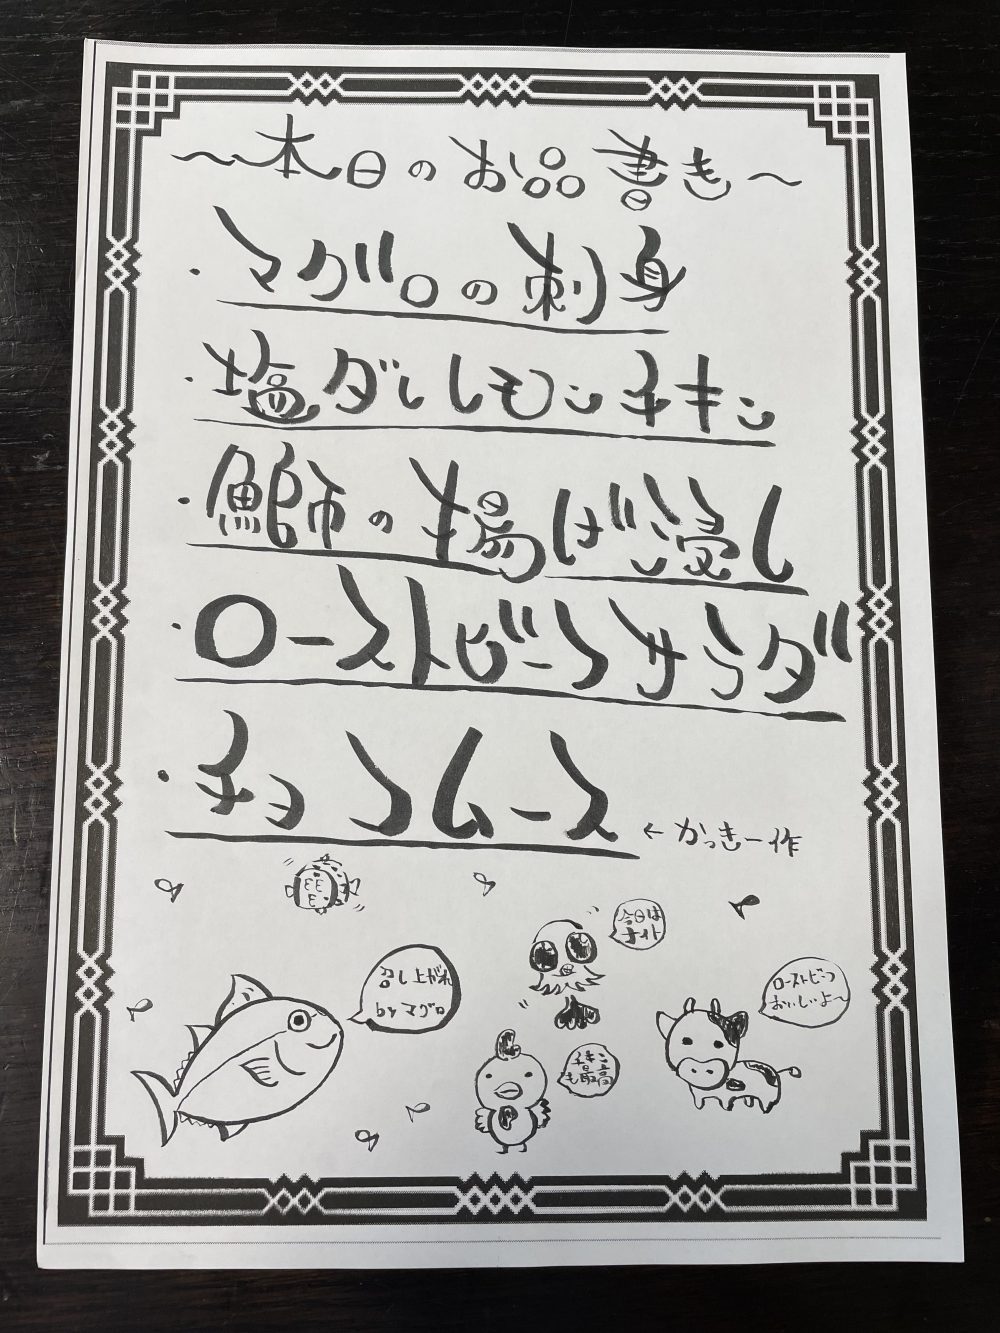 ～本日のお品書き～
・マグロの刺身
・塩ダレレモンチキン
・鰤の揚げ浸し
・ローストビーフサラダ
・チョコムース
←かっきー作
今日は
オイト
召し上がれ
by マグロ
ローストビーフ
おいしいよ～
チキン
も最高